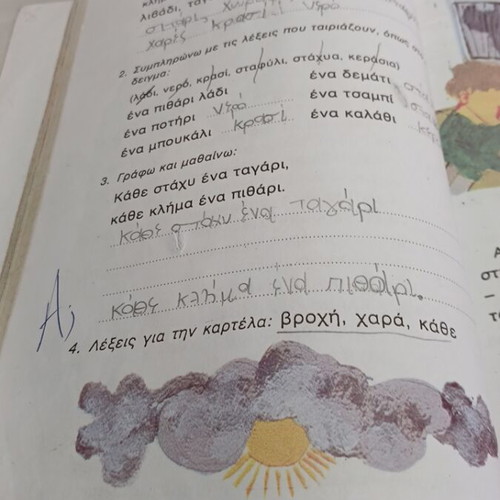 λιβάδι,
σιτάρι, χωριό
χαρές κρασί νερό
2. Συμπληρώνω με τις λέξεις που ταιριάζουν, όπως στο
δείγμα:
(λάδι, νερό, κρασί, σταφύλι, στάχυα, κεράσια)
ένα πιθάρι λάδι ένα δεμάτι
ένα ποτήρι νερό ένα τσαμπί
ένα μπουκάλι κρασί ένα καλάθι
3. Γράφω και μαθαίνω:
Κάθε στάχυ ένα ταγάρι,
κάθε κλήμα ένα πιθάρι.
κάθε στάχυ ένα ταγάρι
κάθε κλήμα ένα πιθάρι.
4. Λέξεις για την καρτέλα: βροχή, χαρά, κάθε